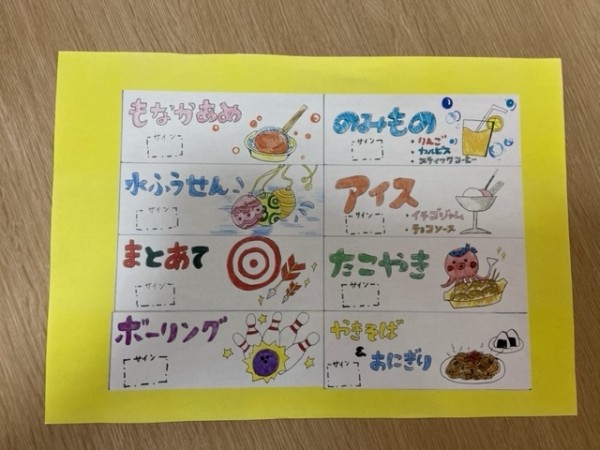 もなかあめ
サイン
のみもの
サイン
・りんご
・カルピス
・スティックコーヒー
水ふうせん♪
サイン
アイス
サイン
・イチゴジャム
・チョコソース
まとあて
サイン
たこやき
サイン
ボーリング
サイン
やきそば
&
おにぎり
サイン